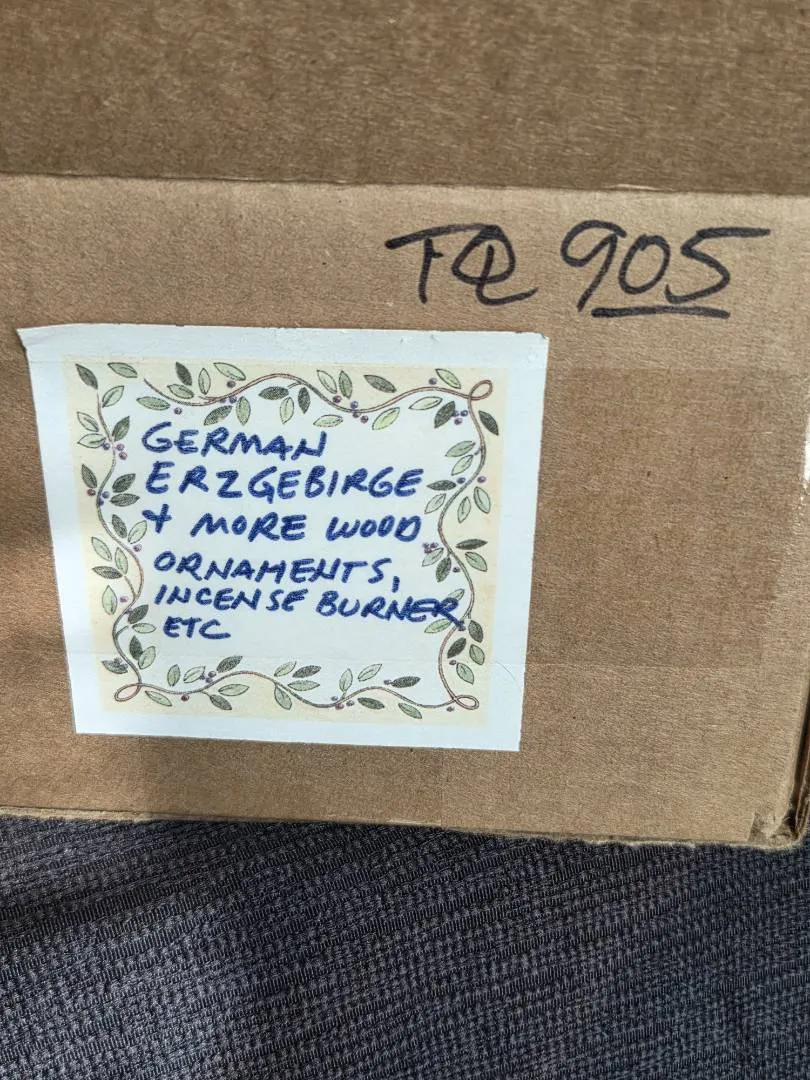 TQ 905
GERMAN
ERZGEBIRGE
+ MORE WOOD
ORNAMENTS,
INCENSE BURNER
ETC